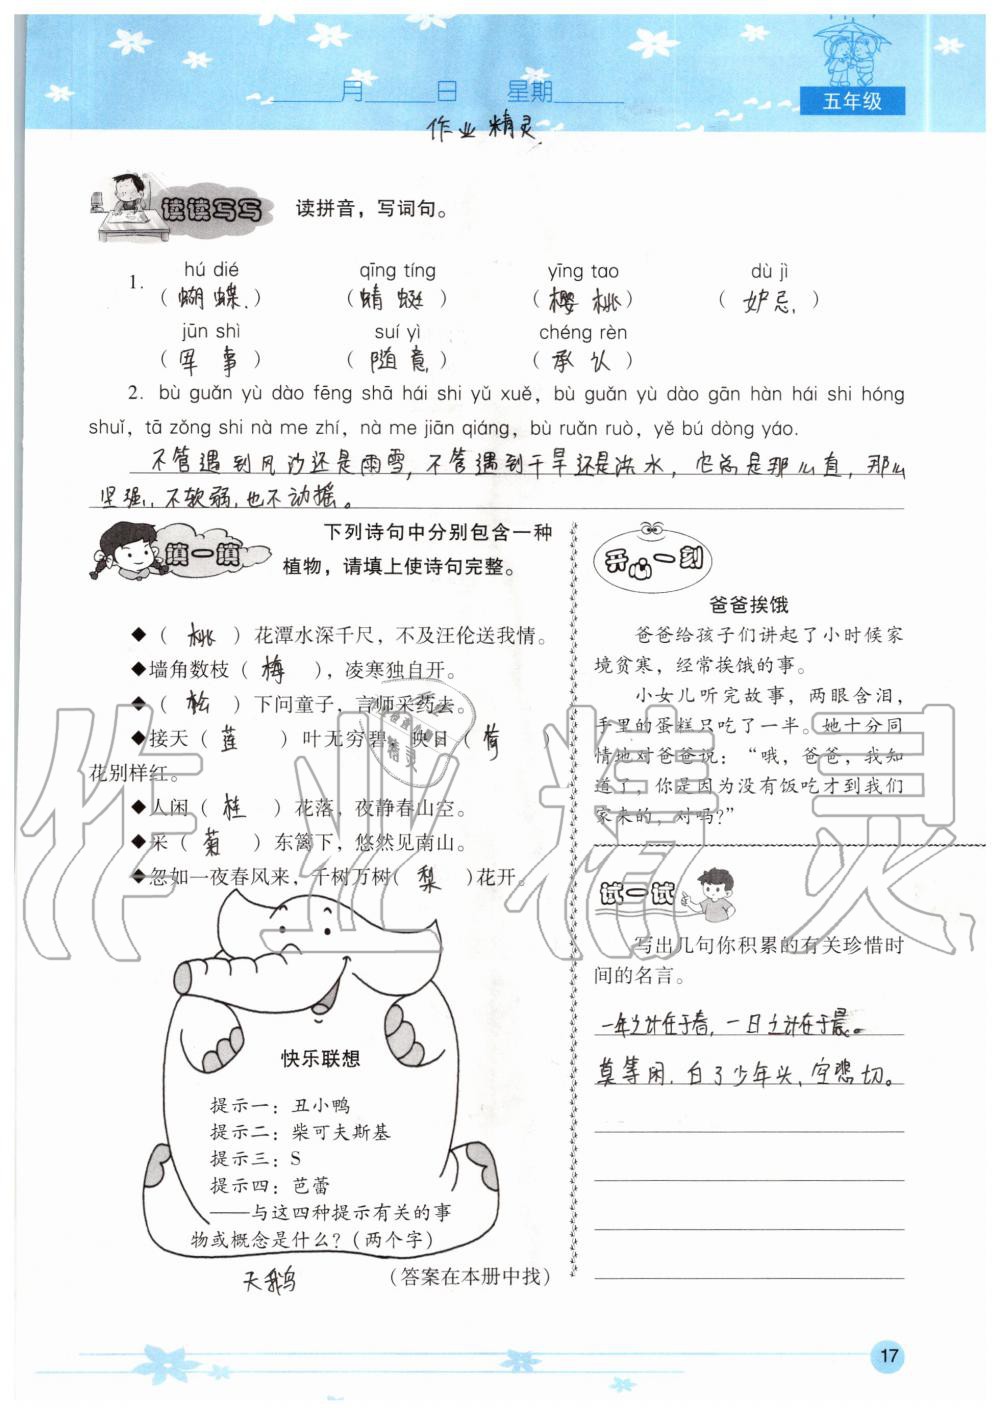 月 日 星期
五年级
作业精灵
读读写写 读拼音，写词句。
hú dié qīng tíng yīng tao dù jì
1.（蝴蝶）（蜻蜓）（樱桃）（妒忌）
jūn shì suí yì chéng rèn
（军事）（随意）（承认）
2. bù guǎn yù dào fēng shā hái shi yǔ xuě，bù guǎn yù dào gān hàn hái shi hóng
shuǐ，tā zǒng shi nà me zhí，nà me jiān qiáng，bù ruǎn ruò，yě bú dòng yáo.
不管遇到风沙还是雨雪，不管遇到干旱还是洪水，它总是那么直，那么
坚强，不软弱，也不动摇。
填一填 下列诗句中分别包含一种
植物，请填上使诗句完整。
◆（桃）花潭水深千尺，不及汪伦送我情。
◆墙角数枝（梅），凌寒独自开。
◆（松）下问童子，言师采药去。
◆接天（莲）叶无穷碧，映日（荷）
花别样红。
◆人闲（桂）花落，夜静春山空。
◆采（菊）东篱下，悠然见南山。
◆忽如一夜春风来，千树万树（梨）花开。
快乐联想
提示一：丑小鸭
提示二：柴可夫斯基
提示三：S
提示四：芭蕾
——与这四种提示有关的事
物或概念是什么？（两个字）
天鹅 （答案在本册中找）
开心一刻
爸爸挨饿
爸爸给孩子们讲起了小时候家
境贫寒，经常挨饿的事。
小女儿听完故事，两眼含泪，
手里的蛋糕只吃了一半。她十分同
情地对爸爸说：“哦，爸爸，我知
道了，你是因为没有饭吃才到我们
家来的，对吗？”
试一试
写出几句你积累的有关珍惜时
间的名言。
一年之计在于春，一日之计在于晨。
莫等闲，白了少年头，空悲切。
作业精灵
17